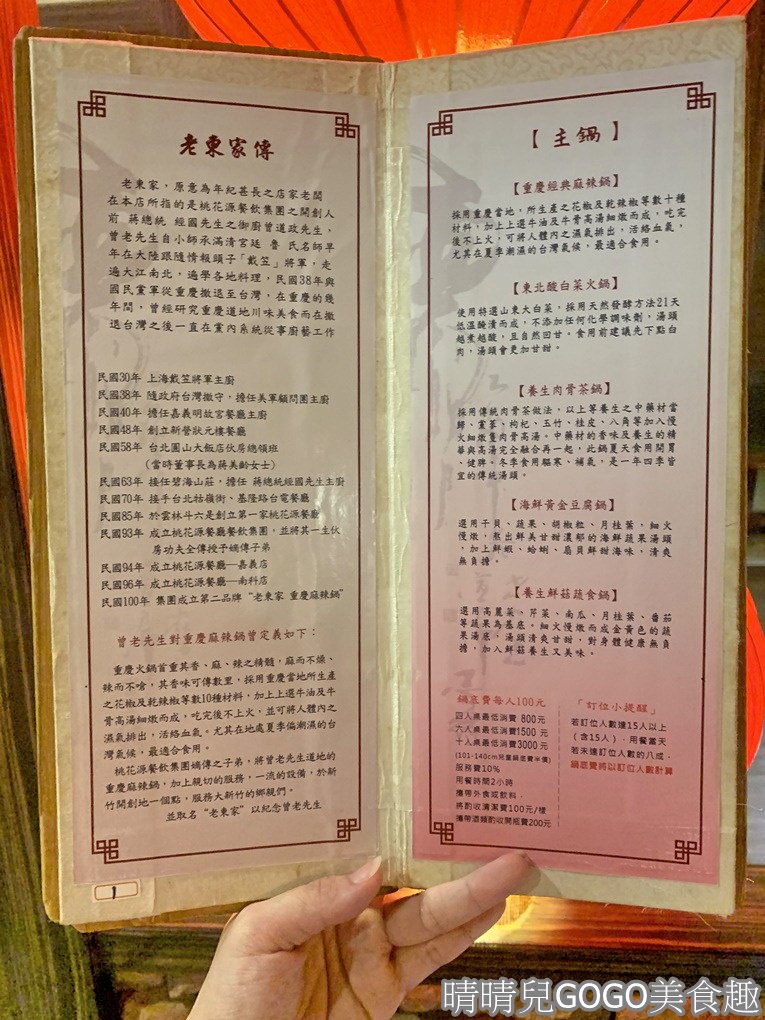 老東家傳
老東家，原意為年紀甚長之店家老闆
在本店所指的是桃花源餐飲集團之開創人
前 蔣總統 經國先生之御廚曾道政先生，
曾老先生自小師承滿清宮廷 魯 氏名師早
年在大陸跟隨情報頭子「戴笠」將軍，走
遍大江南北，遍學各地料理，民國38年與
國民黨軍從重慶撤退至台灣，在重慶的幾
年間，曾經研究重慶道地川味美食而在撤
退台灣之後一直在黨內系統從事廚藝工作
民國30年 上海戴笠將軍主廚
民國38年 隨政府台灣撤守，擔任美軍顧問團主廚
民國40年 擔任嘉義明故宮餐廳主廚
民國48年 創立新營狀元樓餐廳
民國58年 台北圓山大飯店伙房總領班
（當時董事長為蔣美齡女士）
民國63年 接任碧海山莊，擔任 蔣總統經國先生主廚
民國70年 接手台北牯嶺街、基隆路台電餐廳
民國85年 於雲林斗六是創立第一家桃花源餐廳
民國93年 成立桃花源餐廳餐飲集團，並將其一生伙
房功夫全傳授于嫡傳子弟
民國94年 成立桃花源餐廳—嘉義店
民國96年 成立桃花源餐廳—南科店
民國100年 集團成立第二品牌“老東家 重慶麻辣鍋”
曾老先生對重慶麻辣鍋曾定義如下：
重慶火鍋首重其香、麻、辣之精髓，麻而不燥、
辣而不嗆，其香味可傳數里，採用重慶當地所生產
之花椒及乾辣椒等數10種材料，加上上選牛油及牛
骨高湯細燉而成，吃完後不上火，並可將人體內之
濕氣排出，活絡血氣。尤其在地處夏季偏潮濕的台
灣氣候，最適合食用。
桃花源餐飲集團嫡傳之子弟，將曾老先生道地的
重慶麻辣鍋，加上親切的服務，一流的設備，於新
竹開創地一個點，服務大新竹的鄉親們。
並取名“老東家”以紀念曾老先生
1
【 主鍋 】
【重慶經典麻辣鍋】
採用重慶當地，所生產之花椒及乾辣椒等數十種
材料，加上上選牛油及牛骨高湯細燉而成，吃完
後不上火，可將人體內之濕氣排出，活絡血氣，
尤其在夏季潮濕的台灣氣候，最適合食用。
【東北酸白菜火鍋】
使用特選山東大白菜，採用天然發酵方法21天
低溫醃漬而成，不添加任何化學調味劑，湯頭
越煮越酸，且自然回甘。食用前建議先下點白
肉，湯頭會更加甘甜。
【養生肉骨茶鍋】
採用傳統肉骨茶做法，以上等養生之中藥材當
歸、黨蔘、枸杞、玉竹、桂皮、八角等加入慢
火細燉豬肉骨高湯。中藥材的香味及養生的精
華與高湯完全融合再一起，此鍋夏天食用開胃
、健脾。冬季食用驅寒、補氣，是一年四季皆
宜的傳統湯頭。
【海鮮黃金豆腐鍋】
選用干貝、蔬果、胡椒粒、月桂葉，細火
慢燉，熬出鮮美甘甜濃郁的海鮮蔬果湯頭
，加上鮮蝦、蛤蜊、扇貝鮮甜海味，清爽
無負擔。
【養生鮮菇蔬食鍋】
選用高麗菜，芹菜、南瓜、月桂葉、番茄
等蔬果為基底。細火慢燉而成金黃色的蔬
果湯底，湯頭清爽甘甜，對身體健康無負
擔，加入鮮菇養生又美味。
鍋底費每人100元
四人桌最低消費 800元
六人桌最低消費1500 元
十人桌最低消費3000 元
(101-140cm兒童鍋底費半價)
服務費10%
用餐時間2小時
攜帶外食或飲料，
將酌收清潔費100元/樣
攜帶酒類酌收開瓶費200元
「訂位小提醒」
若訂位人數達15人以上
（含15人），用餐當天
若未達訂位人數的八成，
鍋底費將以訂位人數計算
晴晴兒GOGO美食趣